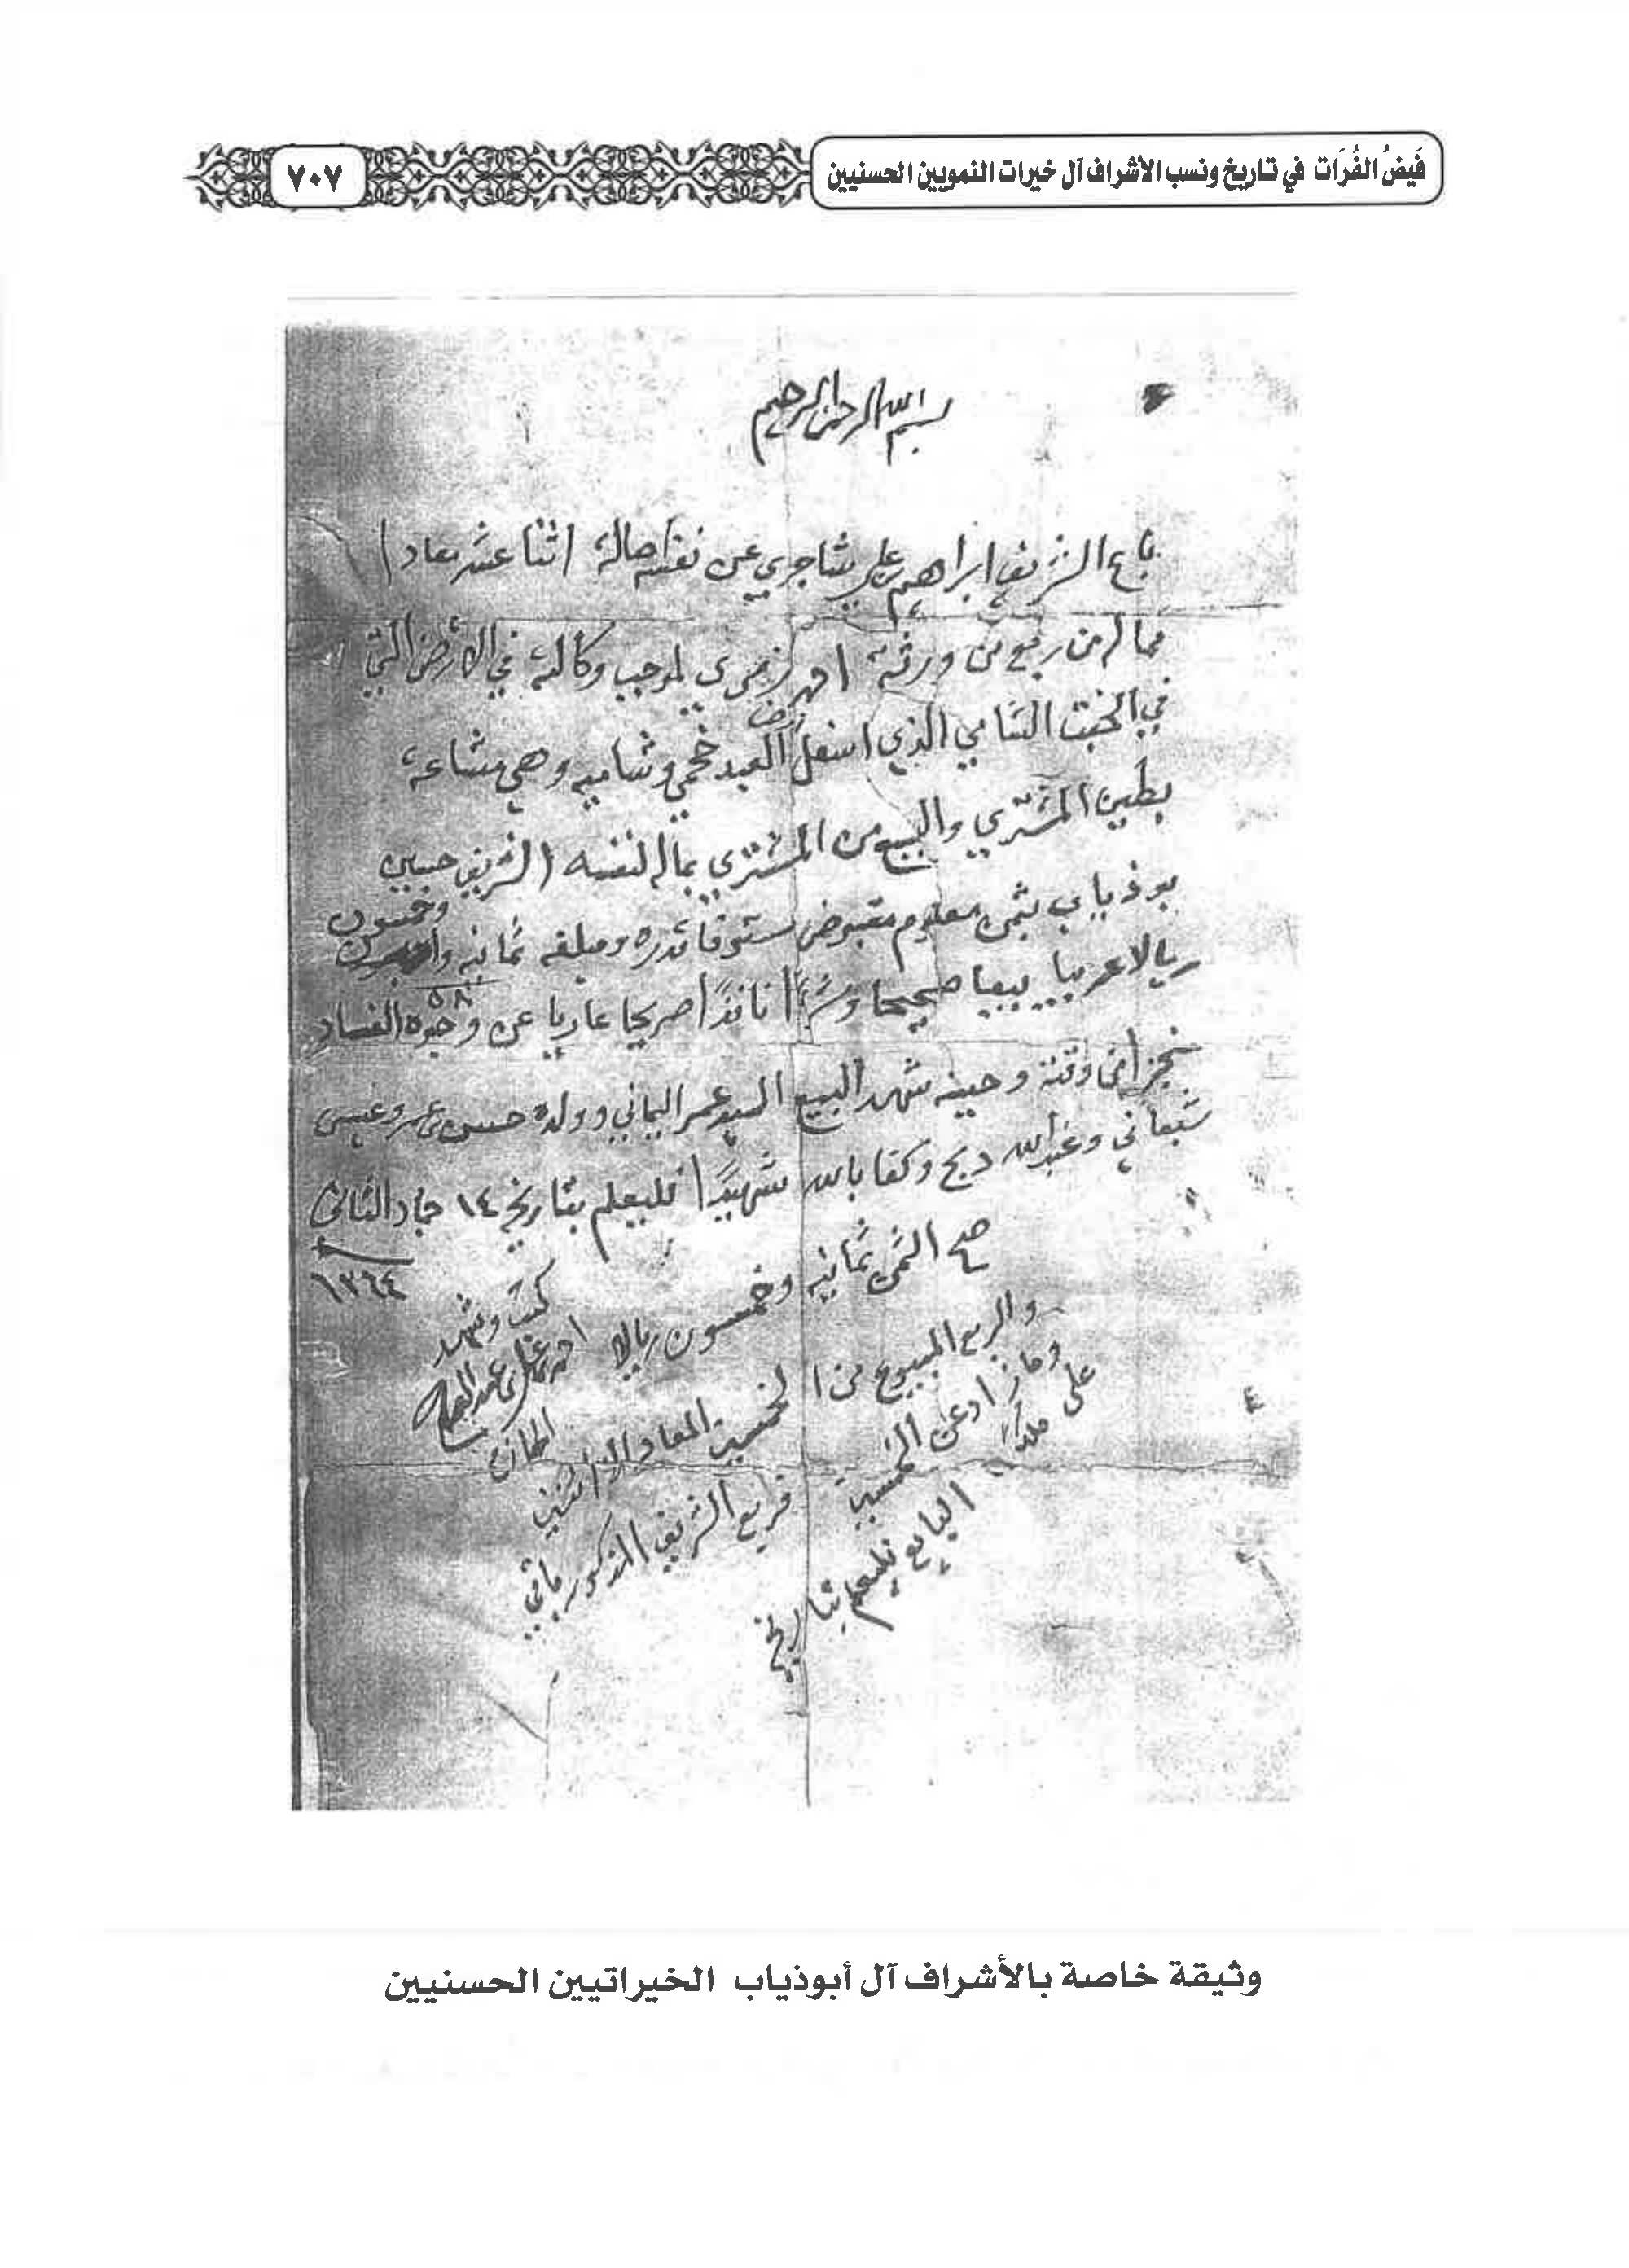 فَيضُ الفُرَات في تاريخ ونسب الأشراف آل خيرات النمويين الحسنيين
٧٠٧
بسم الله الرحمن الرحيم
باع الشريف ابراهيم علي شاجري عن نفسه اصالة اثنا عشر معاد
مماله من ربع من ورثة احمد زمري بموجب وكالته في الارض التي
في الخبت الشامي الذي اسفل ارض العبيد وشاميه وهي مشاعة
بطين المشتري والبيع من المشتري بماله لنفسه الشريف حسين
بوذياب بثمن معلوم مقبوض مستوفا قدره ومبلغه ثمانيه وخمسون
ريالا عربيا بيعا صحيحا وشراً نافذاً صريحا عاريا عن وجوه الفساد
٥٨
وقته وحينه شهد البيع السيد عمر اليماني وولده حسن عمر وعيسى
شبعاني وعبدالله دبج وكفا بالله شهيداً فليعلم بتاريخ ١٤ جماد الثاني
١٣٦٤
صح الثمن ثمانيه وخمسون ريالا
كتب وشهد
احمد علي عبدالفتاح
والربع المبيوع من الخمسة المعاد
وما زاد عن الخمسة فربع الشريف المذكور باقي
على ملك البايع فليعلم بتاريخه
وثيقة خاصة بالأشراف آل أبوذياب الخيراتيين الحسنيين